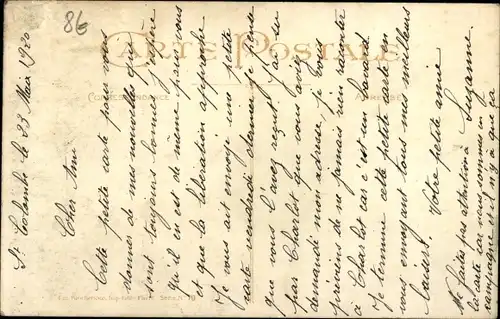 86
CARTE POSTALE
CORRESPONDANCE
ADRESSE
St Colombe le 23 Mai 1920
Cher Ami
Cette petite carte pour vous
donner de mes nouvelles qui
sont toujours bonnes j'espère
qu'il en est de même pour vous
et que la libération approche
Je vous ait envoyé une petite
carte vendredi dernier je pense
que vous l'avez reçut J'ai su
par Charlot que vous avez
demandé mon adresse, je vous
préviens de ne jamais rien raconter
à Charlot car c'est un bavard
Je termine cette petite carte en
vous envoyant tous mes meilleurs
baisers.
Votre petite amie
Suzanne
Ne faites pas attention à
la carte car nous sommes en
campagne et il n'y a